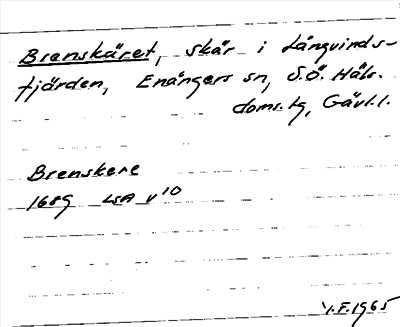 Brenskäret, skär i Långvinds-
fjärden, Enångers sn, S.Ö. Häls.
doms. tg, Gävl.l.
Brenskere
1689 LSA V 10
Y.F. 1965